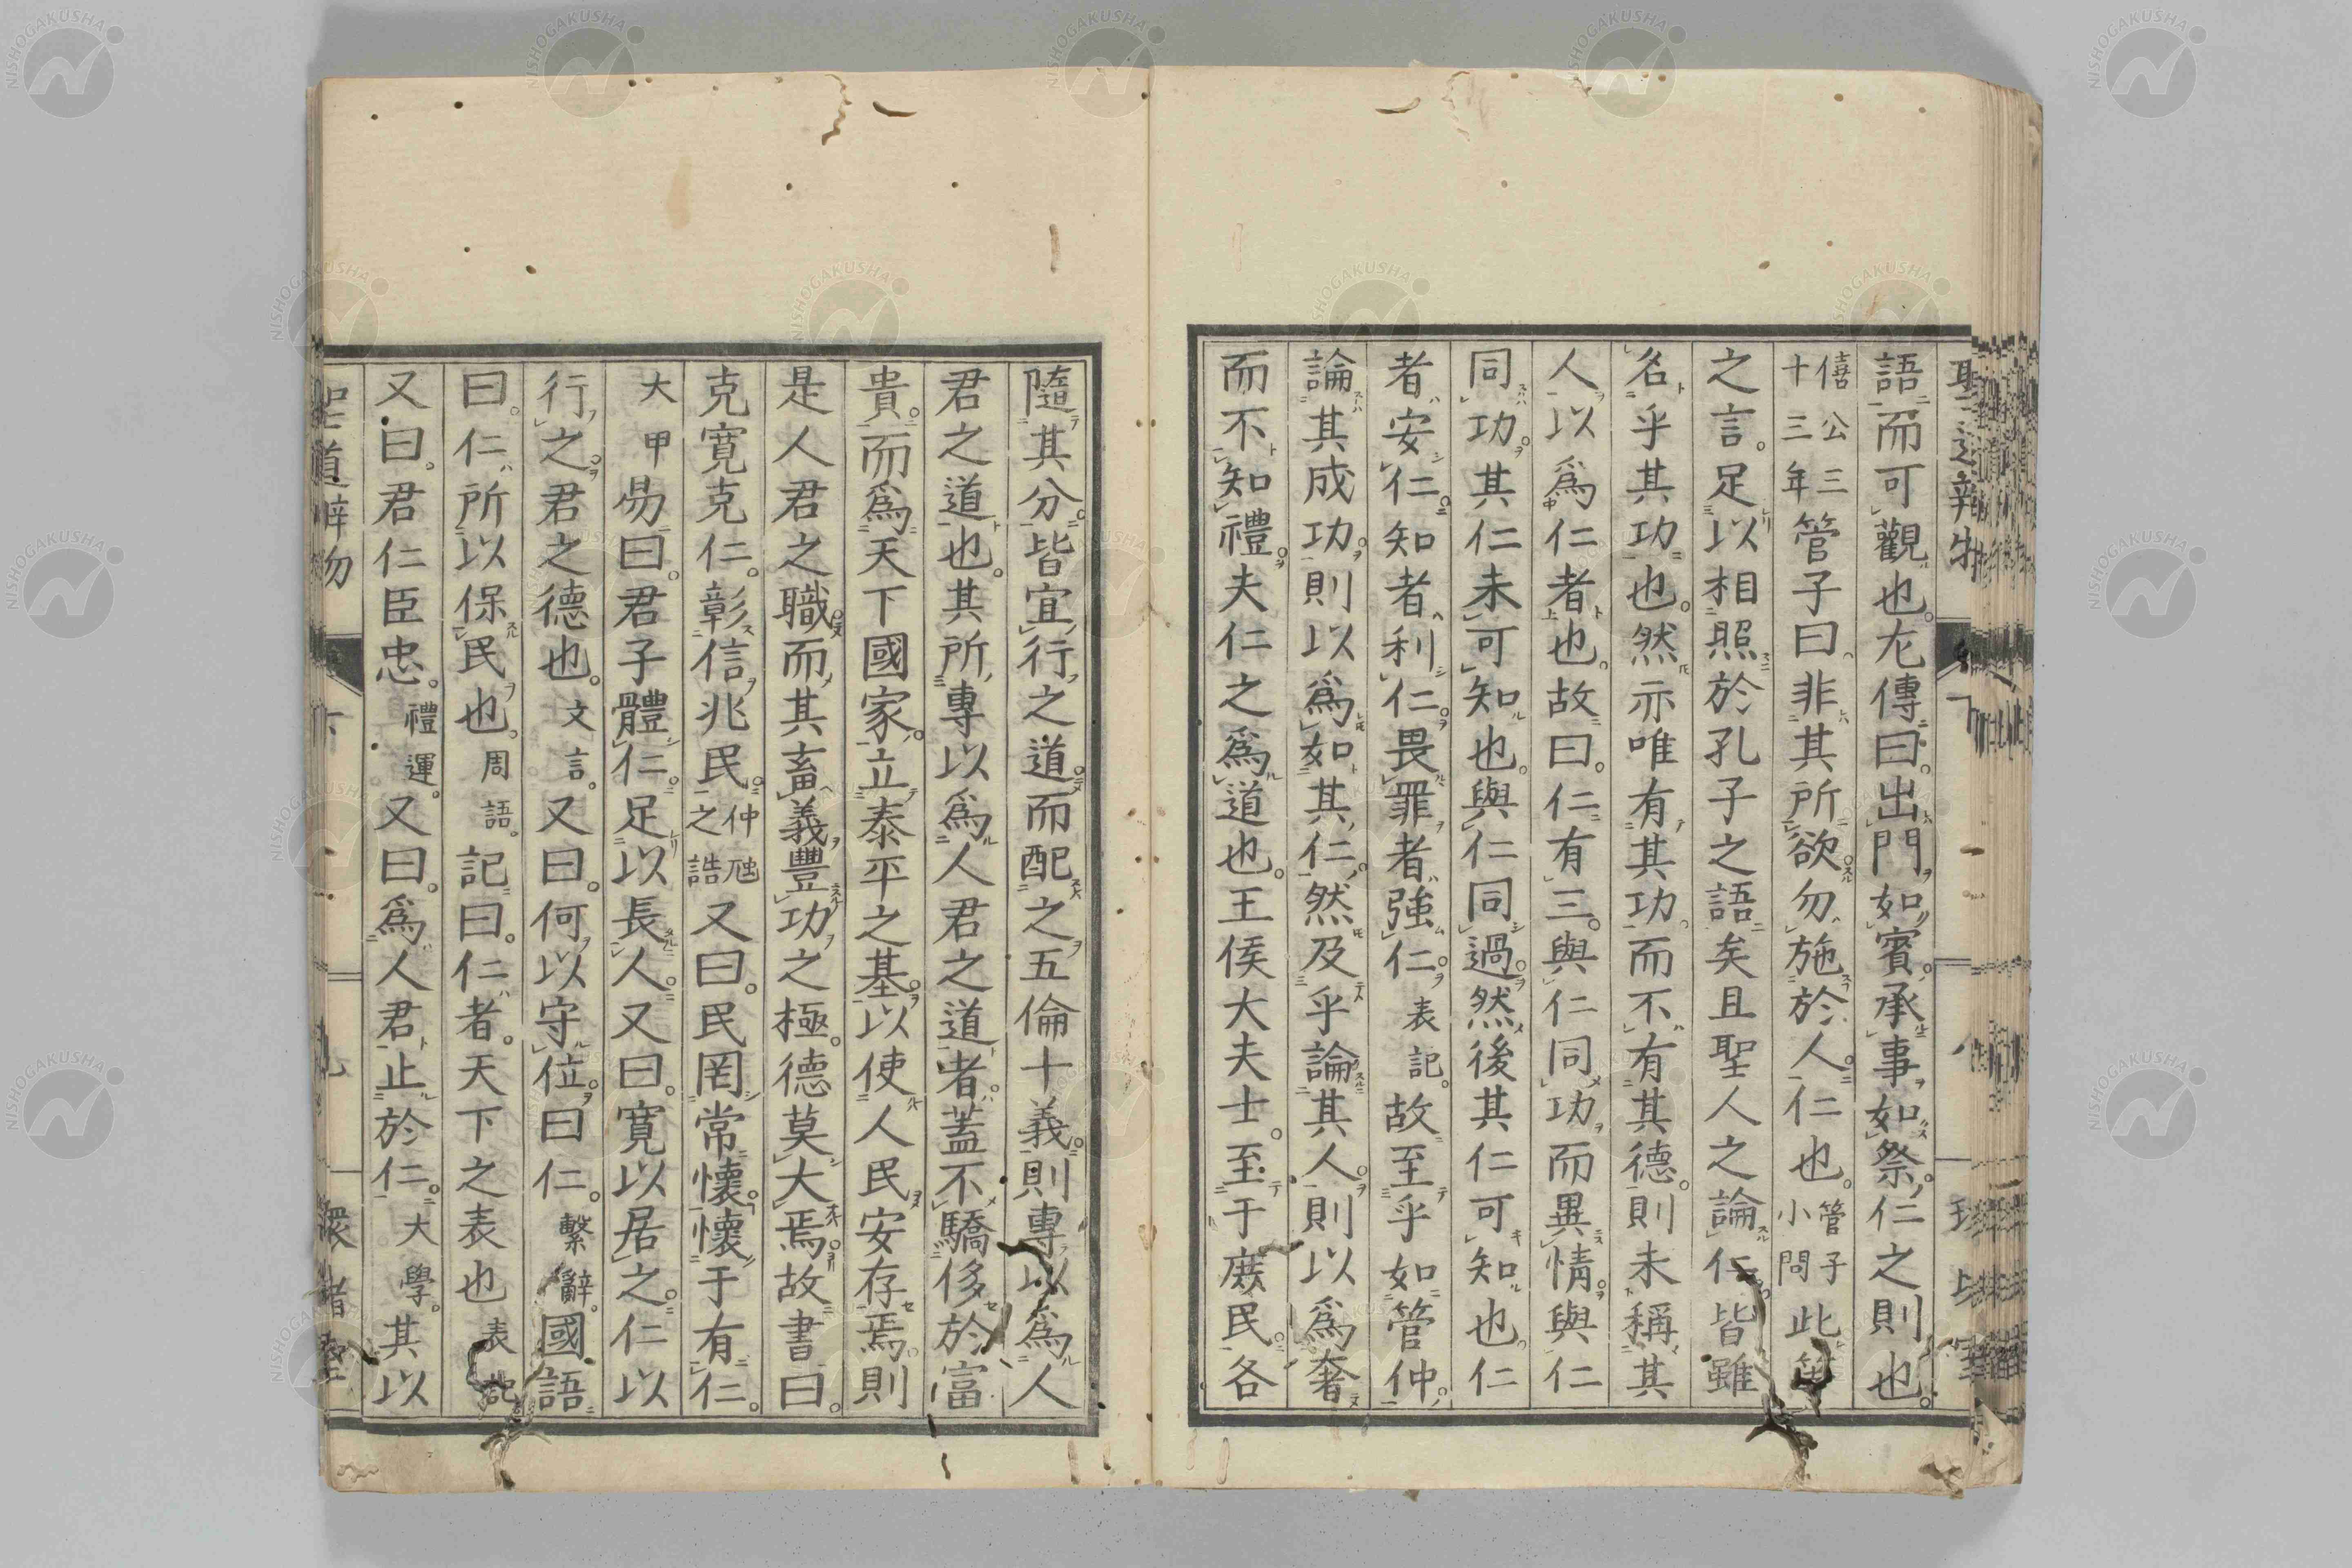 語而可觀也。尤傳曰。出門如賓。承事如祭。仁之則也。
僖公三十三年管子曰非其所欲勿施於人。仁也。管子小問此等
之言。足以相照於孔子之語矣且聖人之論仁皆雖
名乎其功也。然亦唯有其功而不有其德。則未稱其
人以爲仁者也。故曰。仁有三。與仁同功而異情。與仁
同功。其仁未可知也。與仁同過。然後其仁可知也。仁
者安仁。知者利仁。畏罪者強仁。表記。故至乎如管仲。
論其成功。則以爲如其仁。然及乎論其人。則以爲奢
而不知禮。夫仁之爲道也。王侯大夫士。至于庶民。各
隨其分。皆宜行之道。而配之五倫十義。則專以爲人
君之道也。其所專以爲人君之道者。蓋不驕侈於富
貴。而爲天下國家。立泰平之基。以使人民安存焉。則
是人君之職。而其畜義豐功之極。德莫大焉。故書曰。
克寬克仁。彰信兆民。仲虺之誥又曰。民罔常懷。懷于有仁。
大甲易曰。君子體仁。足以長人。又曰。寬以居之。仁以
行之。君之德也。文言。又曰。何以守位。曰仁。繫辭。國語
曰。仁所以保民也。周語。記曰。仁者。天下之表也表記
又曰。君仁臣忠。禮運。又曰。爲人君止於仁。大學。其以